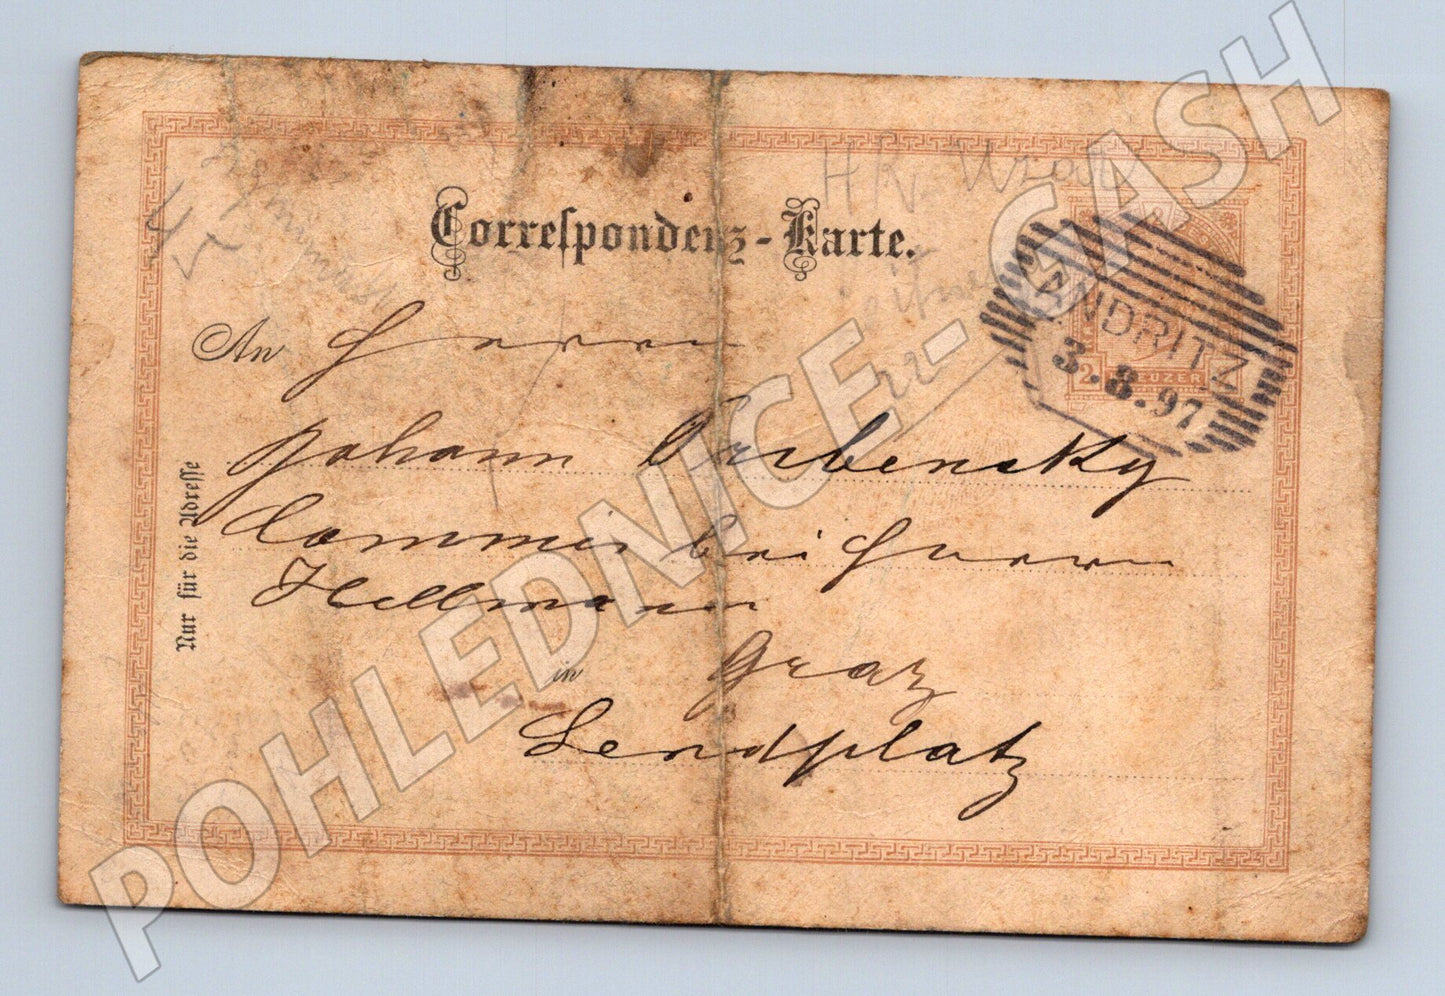 Correspondenz-Karte.
ANDRITZ
3.8.97
2 KREUZER
An Herrn
Johann
Commis bei Herrn
Hellmann
in Graz
Lendplatz
Nur für die Adresse
POHLEDNICE-CASH